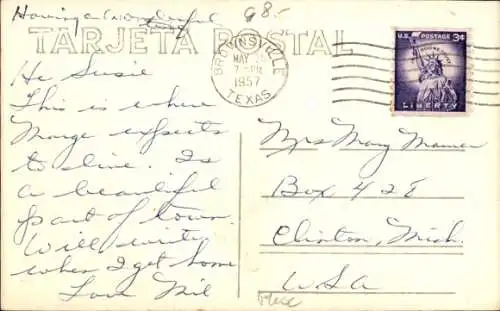 Having a wonderful time
G8.-
TARJETA POSTAL
BROWNSVILLE
MAY
7 - PM
1957
TEXAS
U.S. POSTAGE 3¢
IN GOD WE TRUST
LIBERTY
Hi Susie
This is where
Marge expects
to live. Is
a beautiful
part of town.
Will write
when I get home
Love Mil
Mrs Mary
Box 428
Clinton, Mich.
USA